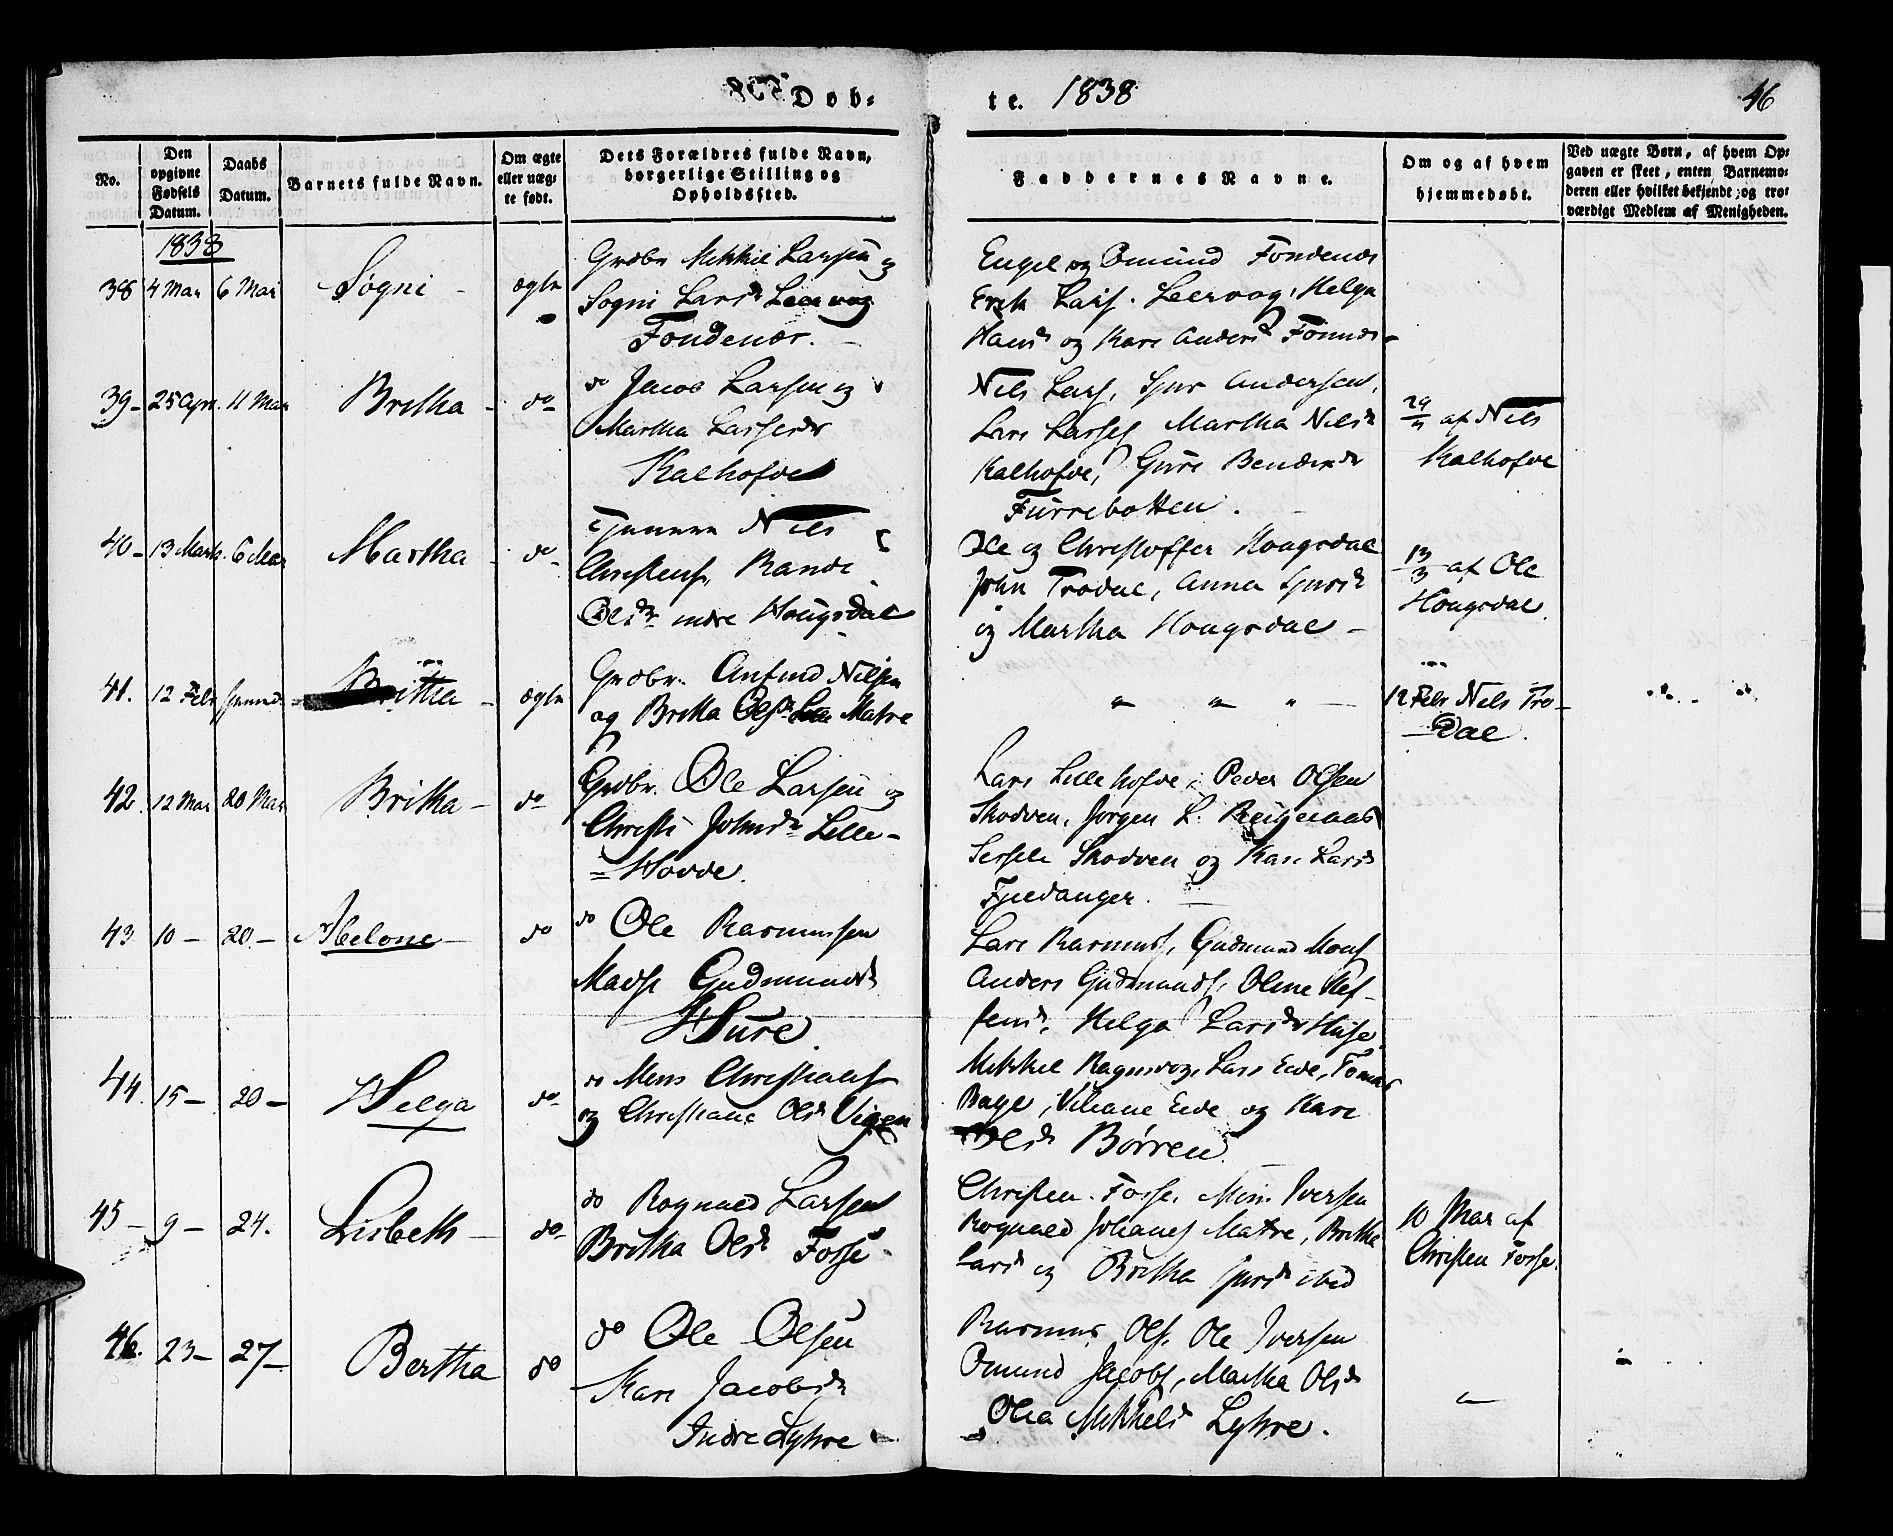 Døb-
te. 1838
46
No.
Den opgivne Fødsels Datum.
Daabs Datum.
Barnets fulde Navn.
Om ægte eller uæg-te født.
Dets Forældres fulde Navn, borgerlige Stilling og Opholdssted.
Faddernes Navne.
Om og af hvem hjemmedøbt.
Ved uægte Børn, af hvem Op-
gaven er skeet, enten Barnemo-
deren eller hvilket bekjendt og tro-
værdigt Medlem af Menigheden.
1838
38 4 Mar 6 Mar Søgni ægte
Grdbr Mikkel Larsen og
Sogni Larsd Leervog
Fondenær.
Engel og Omund Fondenær
Erik Lars. Leervog, Helga
Hansd og Kari Andersd
39- 11 Mar Britha do
do Jacob Larsen og
Martha Larsesdr
Kalhofde
Nils Lars, Sjur Andersen,
Lars Larses Martha Nilsd
Kalhofde, Guri
Furrebotten.
af Nils
Kalhofde
40- 13 6 Mar Martha do
Nils
Christens, Randi
Olsdr indre Hougsdal
Ole og Christoffer Hougsdal
John Trodal, Anna Sjursd
og Martha Hougsdal
13/3 af Ole
Hougsdal.
41. 12 Febr Britha ægte
Grdbr. Anfind Nilsen
og Britha Olsdr Matre
" " "
12 Febr Nils Tro-
dal.
42. 12 Mar 20 Mar Britha do
Grdbr. Ole Larsen og
Christi Johnsdr Lille-
=Hovde.
Lars Lillehofde, Peder Olsen
Skodven, Jørgen L.
Sersele Skodven og Kari Larsd
Fjeldanger.
43 10 - 20 - Helone do
do Ole Rasmussen
Madsi Gudmundsd
Huse.
Lars Rasmuss, Gudmund Mons
Anders Gudmunds, Oline Stef-
fensd, Helga Larsdr Huse.
44. 15 - 20 - Helga do
do Mons Christians
og Christiane Olsd Vigen
Mikkel Lars Eide, Tomas
Eide og Kari
Olsd Børren
45 - 9 - 24. Lisbeth do
do Rognald Larsen
Britha Olsd Fosse.
Christen Fosse, Mons Iversen
Rognald Johanes Matre, Britha
Larsd og Britha Sjursd ibid
10 Mar af
Christen Fosse.
46. 23 - 27 - Bertha do
do Ole Olsen
Kari Jacobsd
Indre Lykre
Rasmus Ols. Ole Iversen
Omund Jacobs, Martha Olsd
Olia Mikkelsd Lykre.